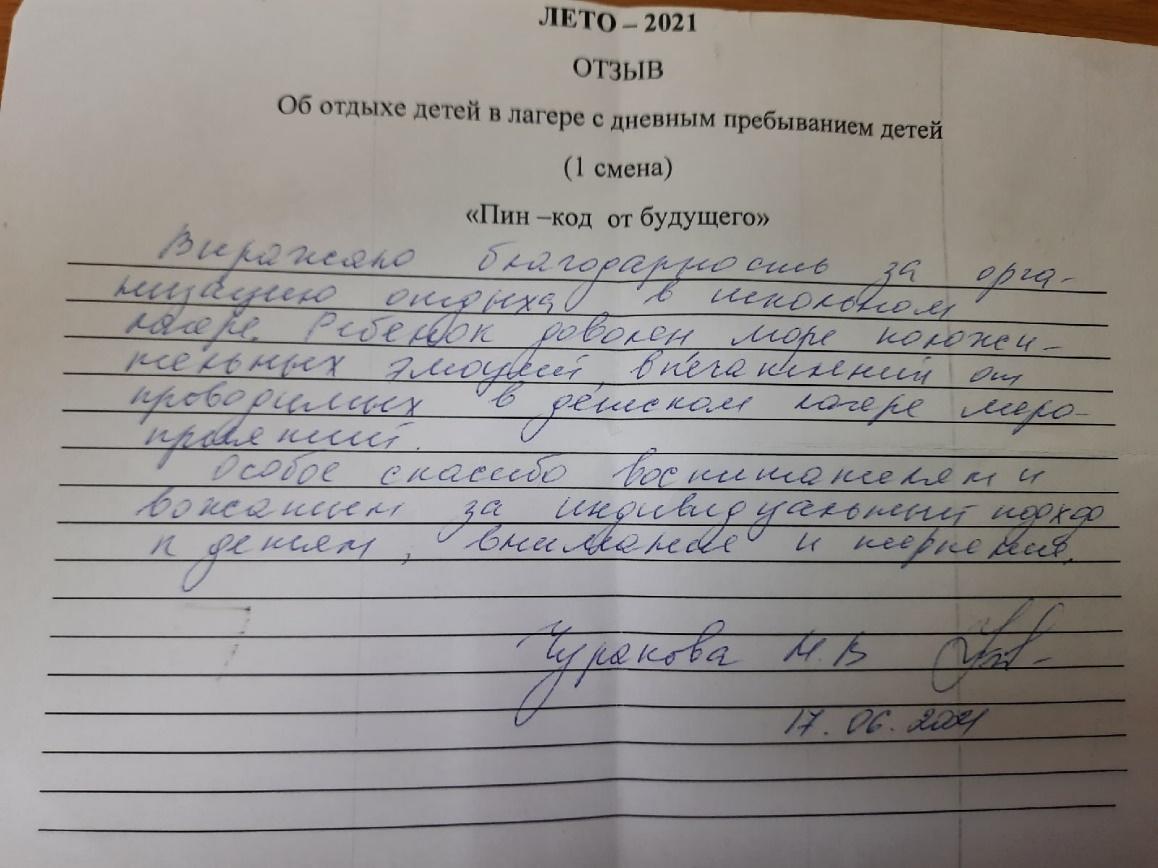 ЛЕТО – 2021
ОТЗЫВ
Об отдыхе детей в лагере с дневным пребыванием детей
(1 смена)
«Пин –код от будущего»
Выражаю благодарность за орга-
низацию отдыха в школьном
лагере. Ребенок доволен море положи-
тельных эмоций, впечатлений от
проводимых в детском лагере меро-
приятий.
Особое спасибо воспитателям и
вожатым за индивидуальный подход
к детям, внимание и терпение.
Чуракова М.В
17.06.2021